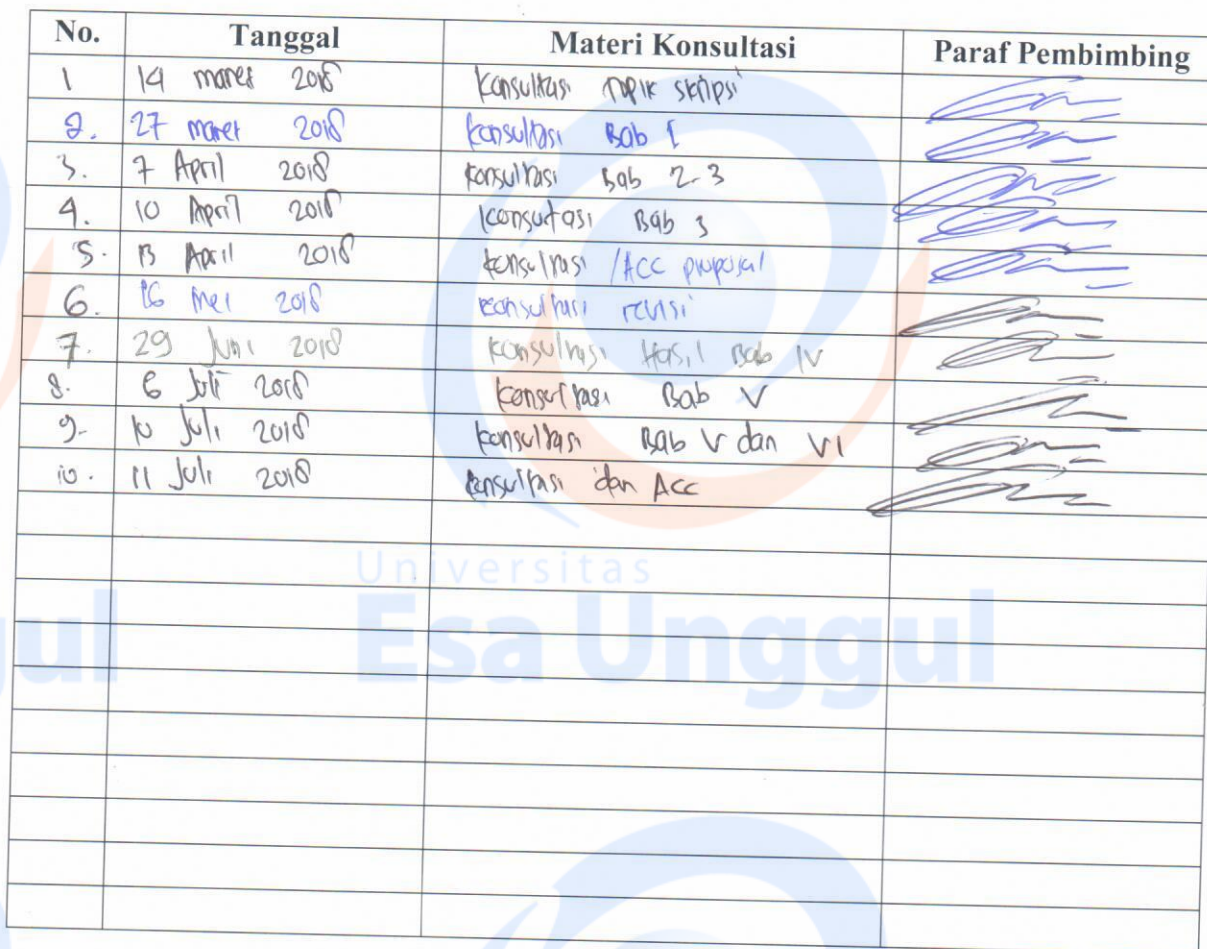 No. Tanggal Materi Konsultasi Paraf Pembimbing
1 14 maret 2018 Konsultasi topik skripsi
2. 27 maret 2018 konsultasi Bab 1
3. 7 April 2018 konsultasi Bab 2-3
4. 10 April 2018 konsultasi Bab 3
5. 13 April 2018 konsultasi /ACC proposal
6. 16 Mei 2018 konsultasi revisi
7. 29 Juni 2018 konsultasi Hasil Bab IV
8. 6 Juli 2018 konsultasi Bab V
9. 10 Juli 2018 konsultasi Bab V dan VI
10. 11 Juli 2018 konsultasi dan Acc
Universitas
gul Esa Unggul